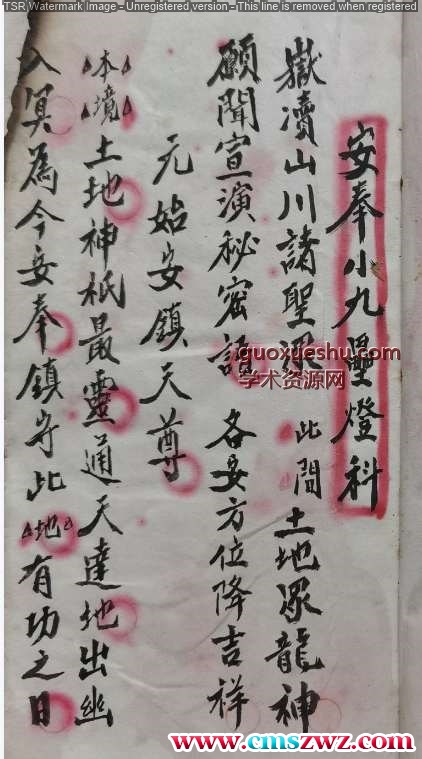 TSR Watermark Image - Unregistered version - This line is removed when registered
安奉小九壘燈科
嶽瀆山川諸聖眾 此間土地眾龍神
願聞宣演秘密語 各安方位降吉祥
元始安鎮天尊
本境土地神祇最靈通天達地出幽
入冥為今安奉鎮守此地有功之日
guoxueshu.com
学术资源网
www.cmszwz.com